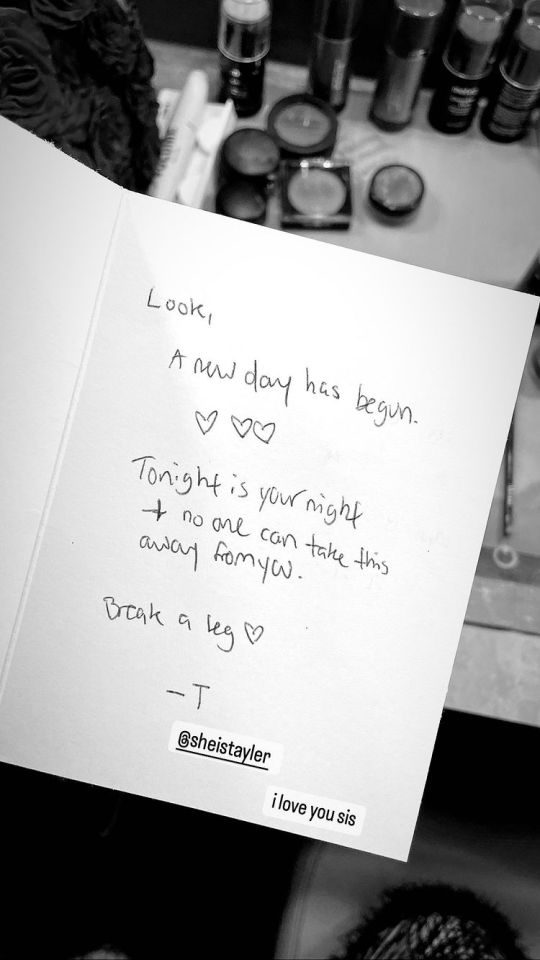 Look,
A new day has begun.
♡ ♡♡
Tonight is your night
+ no one can take this
away from you.
Break a leg ♡
- T
@sheistayler
i love you sis